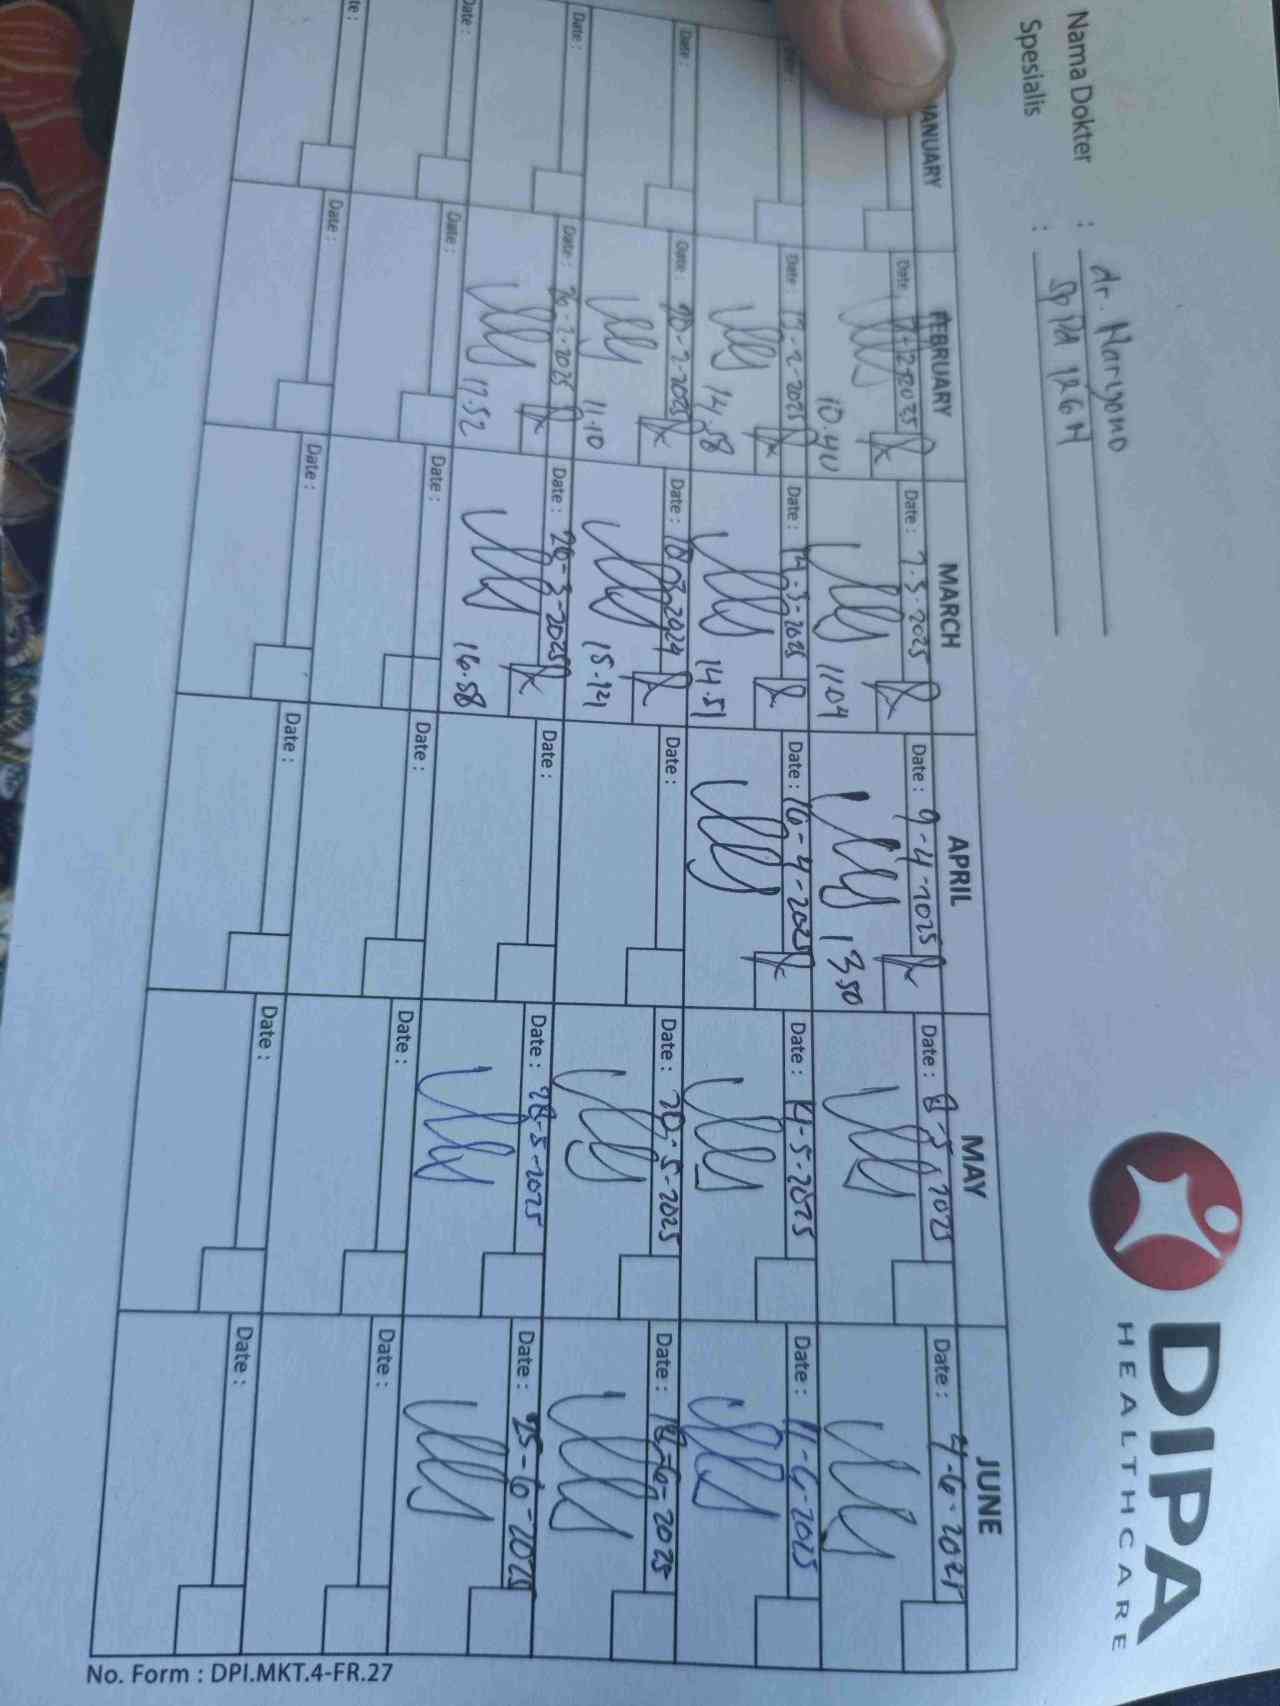 DIPA
HEALTHCARE
Nama Dokter : dr. Maryono
Spesialis : SpPd KGH
JANUARY FEBRUARY MARCH APRIL MAY JUNE
Date : Date : 7.3.2025 Date : 9-4-2025 Date : 8-5-2025 Date : 4-6-2025
10.40 11.04 1350
Date : Date : 13-2-2025 Date : 14-3-2025 Date : 16-4-2025 Date : 14-5-2025 Date : 11-6-2025
14.58 14.51
Date : Date : 20-2-2025 Date : Date : Date : 20-5-2025 Date : 18-6-2025
11.10 15.121
Date : Date : 26-2-2025 Date : 26-3-2025 Date : Date : 28-5-2025 Date : 25-6-2025
17.52 16.58
Date : Date : Date : Date : Date : Date :
te : Date : Date : Date : Date : Date :
No. Form : DPI.MKT.4-FR.27